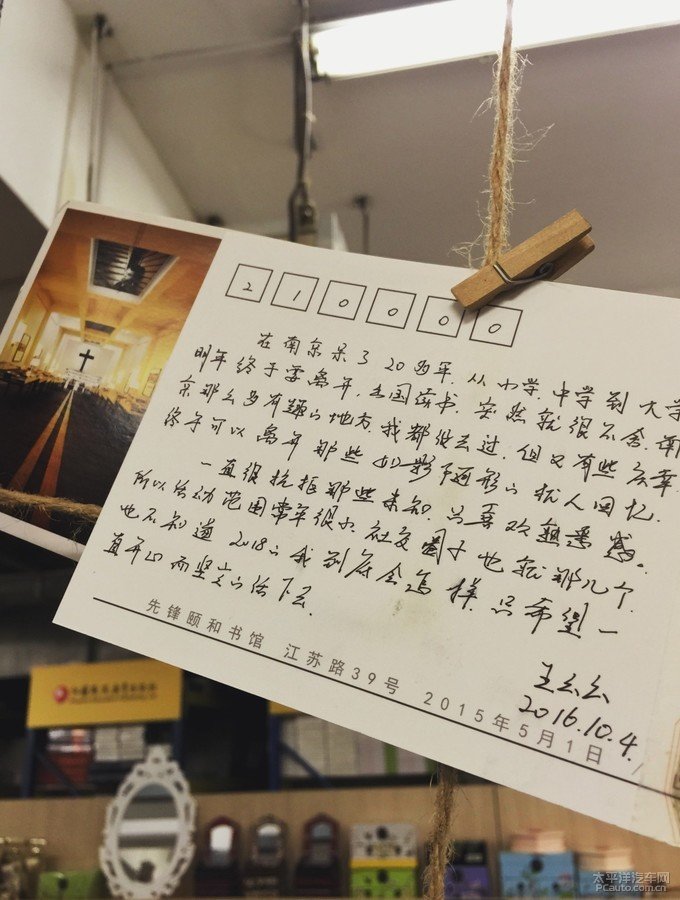 210000
在南京呆了20多年,从小学,中学到大学
明年终于要离开,去国读书,突然就很不舍,南
京那么多有趣的地方,我都没去过,但又有些庆幸
终于可以离开那些如影随形的扰人回忆.
一直很抗拒那些未知,只喜欢熟悉感。
所以活动范围常年很小,社交圈子也就那几个
也不知道2018的我到底会怎样只希望一
直开心而坚定的活下去.
王幺幺
2016.10.4.
先锋颐和书馆 江苏路39号 2015年5月1日
太平洋汽车网
PCauto.com.cn